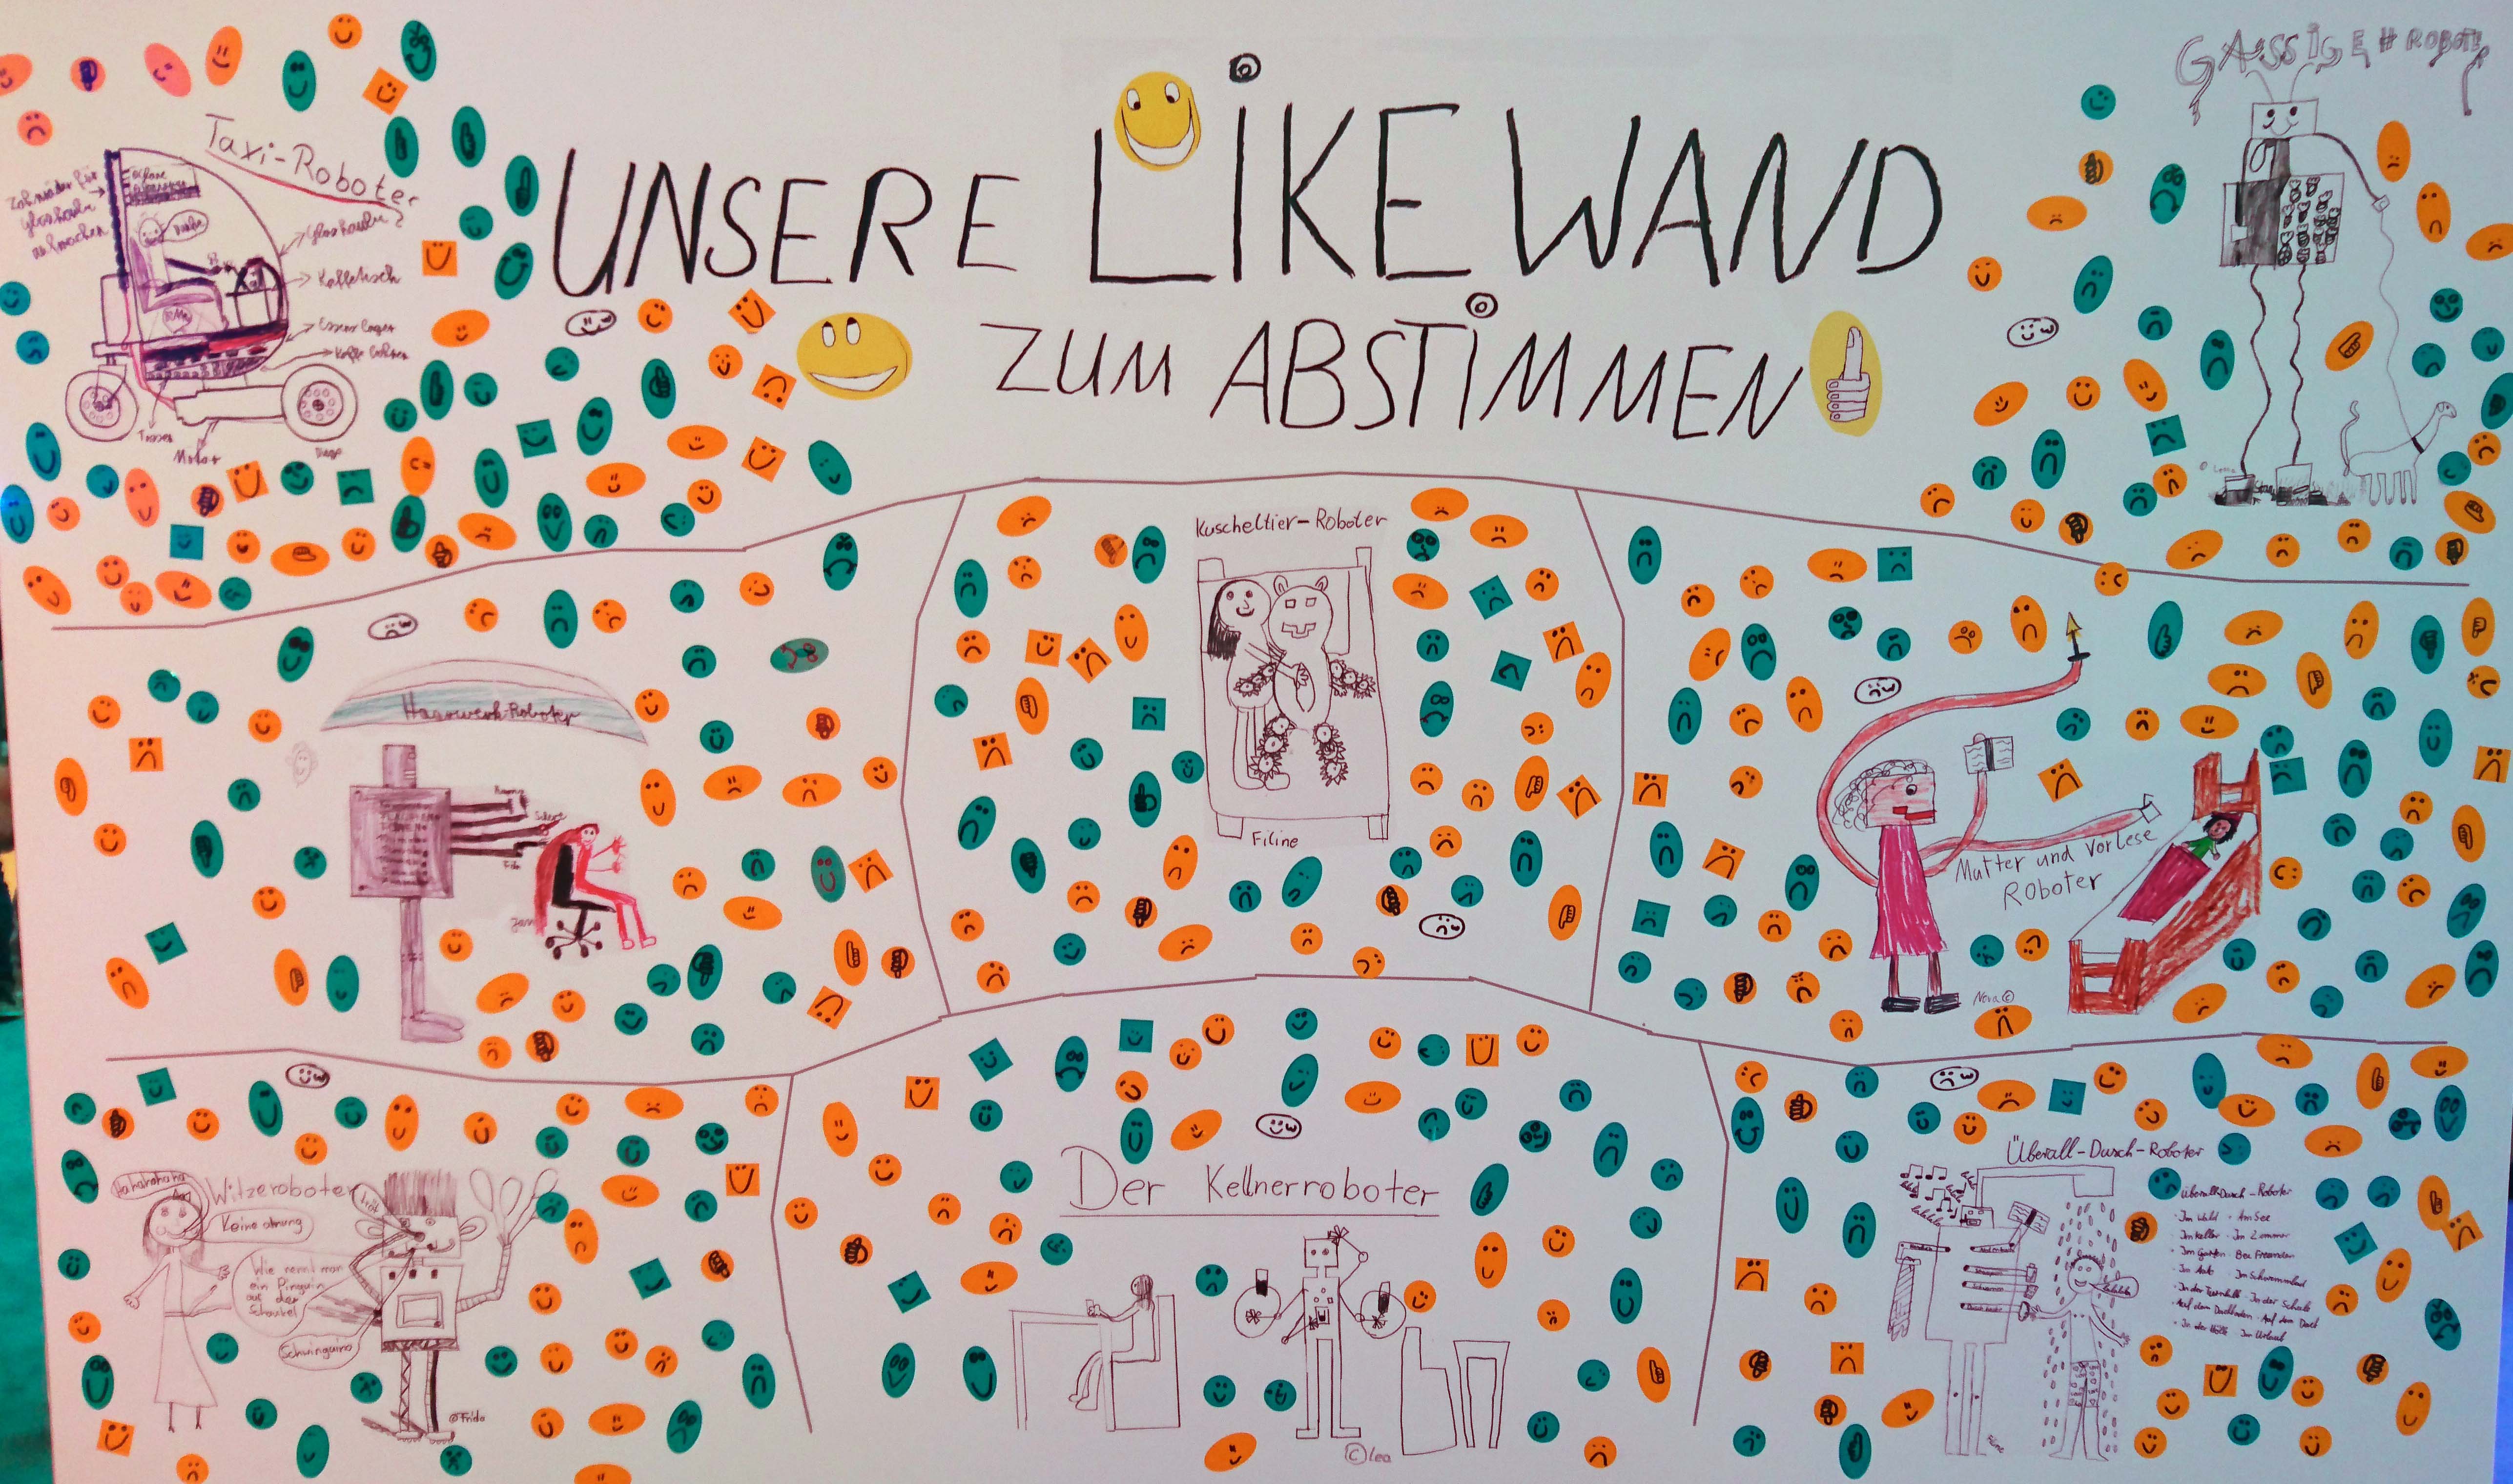 UNSERE LIKE WAND
ZUM ABSTIMMEN
Taxi-Roboter
Zahnräder für
Glashaube
zu machen
Danke
Glashaube
Kaffetisch
Essens lager
Kaffe bohnen
Tassen
Motor
GASSIGEHROBOTER
Haarwerk-Roboter
Kuscheltier-Roboter
Filine
Mutter und Vorlese
Roboter
Nova ©
Hahahahaha
Witzeroboter
Keine ahnung
Wie nennt man
ein Pinguin
auf der
Schaukel
Schwinguin
©Frida
Der Kellnerroboter
© Lea
Überall-Dusch-Roboter
Überall-Dusch-Roboter
• Im Wald • Am See
• Im Keller • Im Zimmer
• Im Garten • Bei Freunden
• Im Auto • Im Schwimmbad
• In der Turnhalle • In der Schule
• Auf dem Dachboden • Auf dem Dach
• In der Höhle • Im Urlaub
lalalala